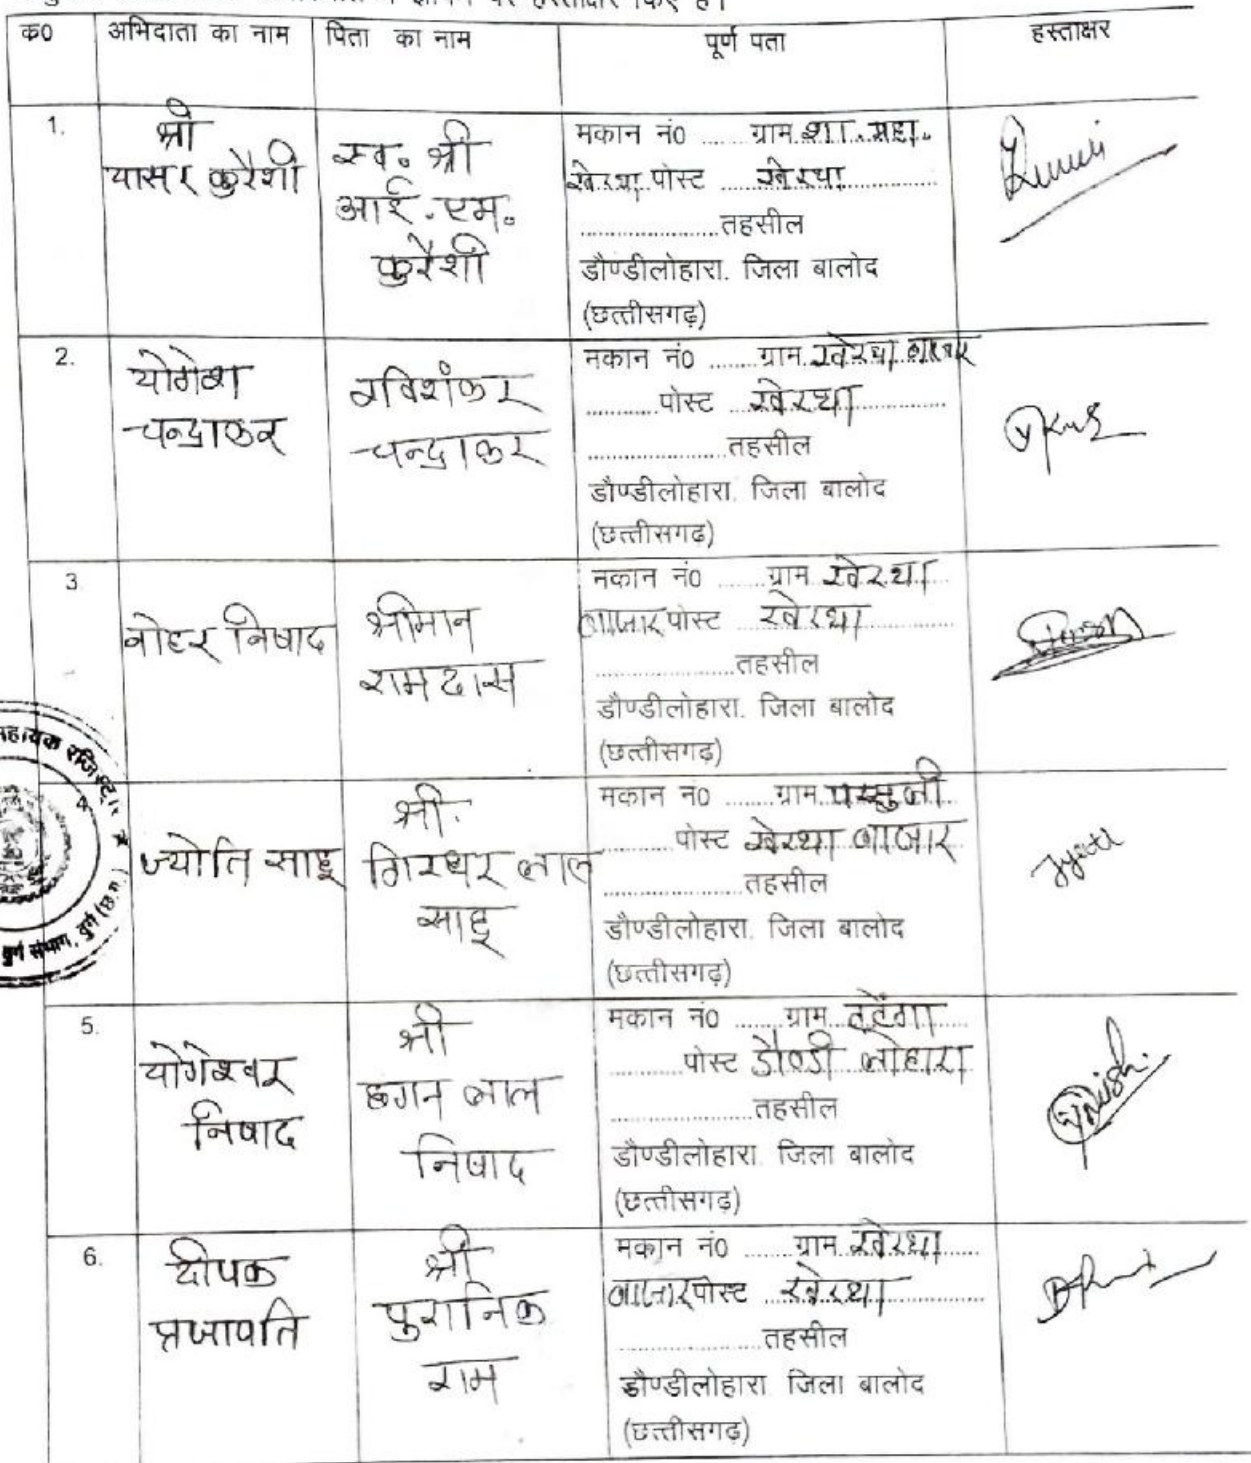 हस्ताक्षर किए हैं।
क0 अभिदाता का नाम पिता का नाम पूर्ण पता हस्ताक्षर
1.
श्री
यासर कुरैशी
स्व. श्री
आई. एम.
कुरैशी
मकान नं0 ...... ग्राम शा. महा.
खेरथा पोस्ट खेरथा
तहसील
डौण्डीलोहारा. जिला बालोद
(छत्तीसगढ़)
2.
योगेश
चन्द्राकर
रविशंकर
चन्द्राकर
मकान नं0 ...... ग्राम खेरथा बाजार
पोस्ट खेरथा
तहसील
डौण्डीलोहारा. जिला बालोद
(छत्तीसगढ़)
3
नोहर निषाद
श्रीमान
रामदास
मकान नं0 ...... ग्राम खेरथा
बाजार पोस्ट खेरथा
तहसील
डौण्डीलोहारा. जिला बालोद
(छत्तीसगढ़)
4
ज्योति साहू
श्री
गिरधर लाल
साहू
मकान नं0 ...... ग्राम
पोस्ट खेरथा बाजार
तहसील
डौण्डीलोहारा. जिला बालोद
(छत्तीसगढ़)
Jyoti
5.
योगेश्वर
निषाद
श्री
छगन लाल
निषाद
मकान नं0 ...... ग्राम
पोस्ट डौण्डी लोहारा
तहसील
डौण्डीलोहारा. जिला बालोद
(छत्तीसगढ़)
6.
दीपक
प्रजापति
श्री
पुरानिक
राम
मकान नं0 ...... ग्राम खेरथा
बाजार पोस्ट खेरथा
तहसील
डौण्डीलोहारा जिला बालोद
(छत्तीसगढ़)
सहायक रजिस्ट्रार
दुर्ग संभाग, दुर्ग (छ.ग.)